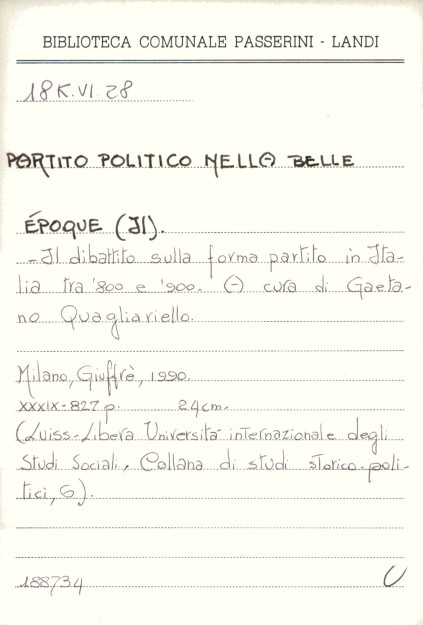 BIBLIOTECA COMUNALE PASSERINI - LANDI
18K.VI.28
PARTITO POLITICO NELLA BELLE
ÉPOQUE (Il).
- Il dibattito sulla forma partito in Ita-
lia tra '800 e '900. A cura di Gaeta-
no Quagliariello.
Milano, Giuffrè, 1990.
XXXIX-827 p. 24 cm.
(Luiss-Libera Università internazionale degli
Studi Sociali, Collana di studi storico-poli-
tici, 6).
188734 U